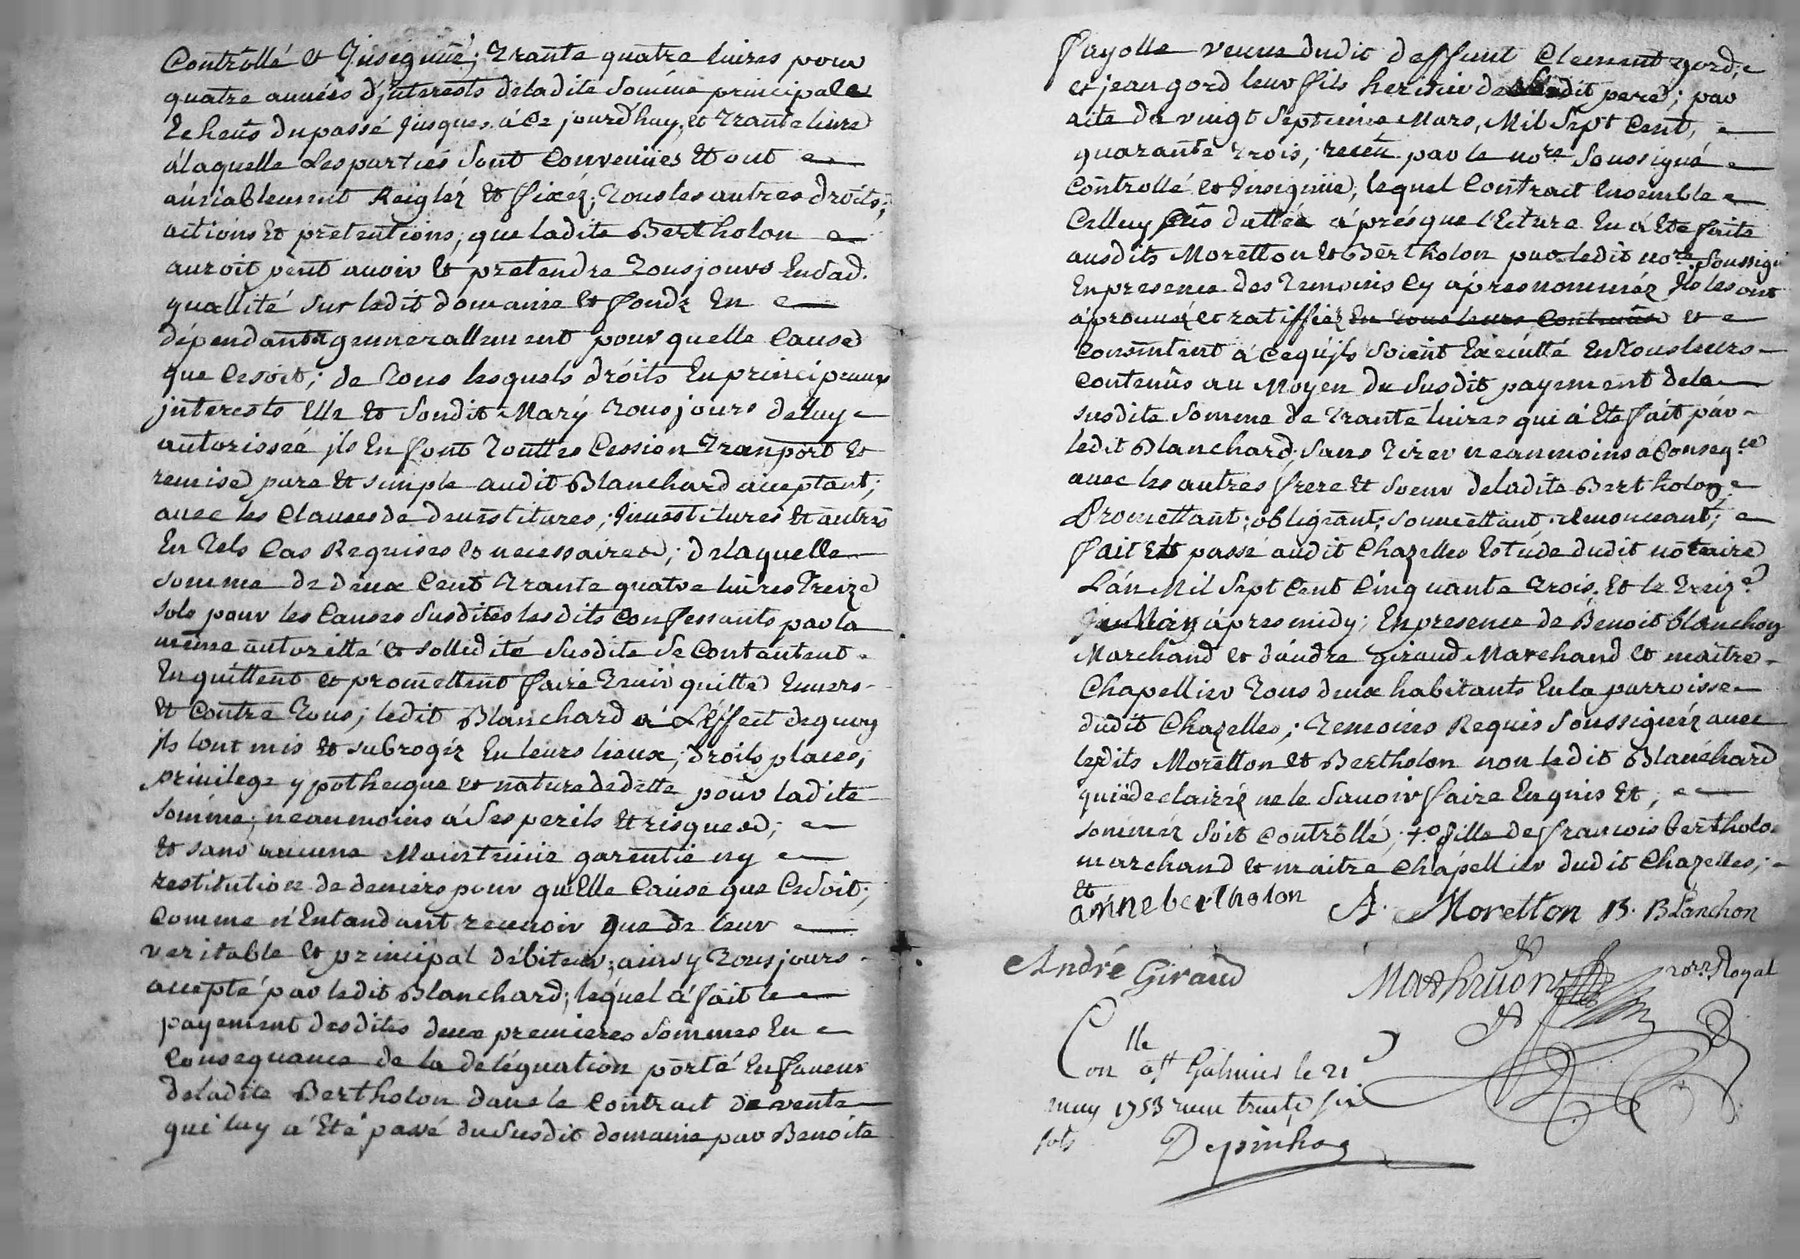 Contrôllé et Insignüé; Trante quatre livres pour
quatre années d'jnterests deladite sômme principale
Echeûs dupassé jusques à Ce jourd'huy, et Trante livre
à laquelle Les parties sont Convenües et ont
amiablement Reiglez et fixéz; Tous les autres droits,
actions et prètentions, que ladite Bertholon
auroit peut avoir et pretendre Tousjours En Sad.
quallité sur ledit domaine et fondz En
dépendants generallement pour quelle Cause
que Cesoit; de Tous lesquels dròits En principeaux
jnterests Elle et Sondit Mary Tousjours deluy
autorissée jls En font Touttes Cession Tranport et
remise pure et simple audit Blanchard aceptant;
avec les Clauses de devestitures, Jnvestitures et autres
En Tels Cas Requises et necessaires; delaquelle
somme de deux Cent Trante quatre livres Treize
sols pour les Causes Susdites lesdits Confessants par la
même autoritté et sollidité susdite Se Contantent
En quittent et promettent faire Tenir quitte Envers
et Contre Tous; ledit Blanchard à L'éffect dequoy
jls lont mis et subrogéz En leurs lieux, droits, places,
privilege ypotheque et nature dedette pour ladite
sômme; neanmoins à Ses perils et risques;
et sans aucune Maintenüe garentie ny
restitution de deniers pour quElle Cause que Cesoit;
Comme n'Entandant recevoir que de leur
veritable et principal débiteur; ainsy Tousjours
accepté par ledit Blanchard; lequel à fait le
payement desdites deux premieres sommes En
Consequance de la délégnation porté En faveur
deladite Bertholon dans le Contract de vente
qui luy a Eté passé du Susdit domaine par Benoite
fayolle veuve dudit deffunt Clement gord,
et jean gord leur fils heritier de sondit pere; par
acte du vingt septieme Mars, Mil Sept Cent,
quarante Trois, receû par le no.re Soussigné
Contrôllé et Insignüé; lequel Contrait Ensemble
Celluy çeûs dattée àprés que lEcture En à Eté faite
ausdits Moretton et Bertholon par ledit no.re Soussigné
En presence des Temoins Cy àprés nomméz Jls les ont
àprouvéz et ratiffiéz En Tous leurs Contenûs et
Consentent à Cequ'jls soient Exécutté En Tous leurs
Contenûs au Moyen du Susdit payement dela
susdite Somme de Trante livres qui à Eté fait par
ledit Blanchard sans Tirer neanmoins à Conseq.ce
avec les autres frere et Soeur deladite Bertholon
Promettant; obligeant; soumettant; Renonceant;
fait Et passé audit Chazelles Estude dudit notaire
L'an Mil Sept Cent Cinquante Trois, et le Treiz.e
May àpres midy; En presence de Benoit blanchon
Marchand et d'andre giraud Marchand et maitre
Chapellier Tous deux habitants En la parroisse
dudit Chazelles; Temoins Requis Soussignéz avec
lesdits Moretton et Bertholon non ledit Blanchard
qui à declairéz ne le Savoir faire Enquis et;
sommér soit Contrôllé, fille de francois bertholon
marchand et maitre chapellier dudit Chazelles;
et
anne bertholon A. Moretton B. Blanchon
André Giraud no.re Royal
lle
Con a St Galmier le 21
may 1753 recu trente six
sols